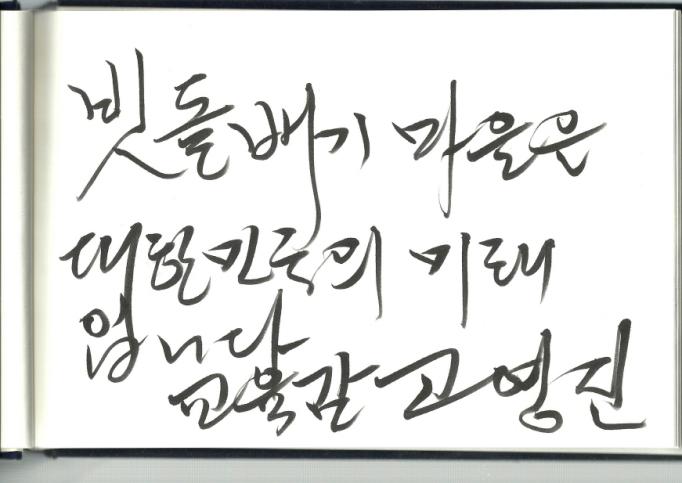 빗돌배기 마을은
대한민국의 미래
입니다
교육감 고영진